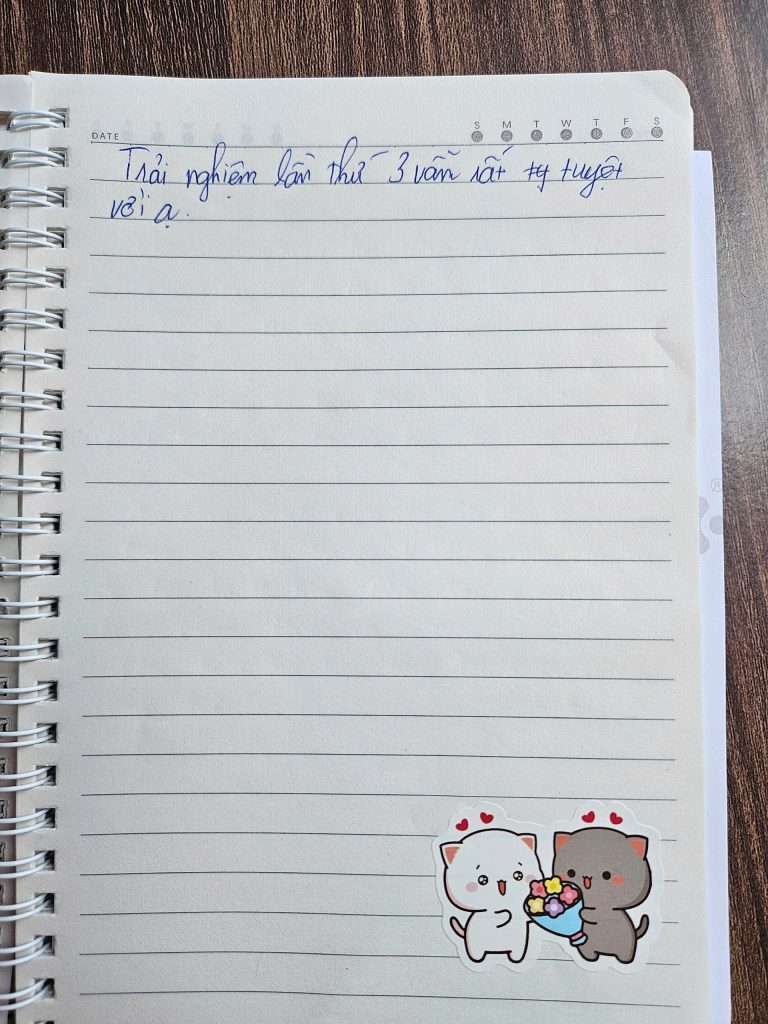 DATE
S M T W T F S
Trải nghiệm lần thứ 3 vẫn rất ty tuyệt
vời ạ.
®